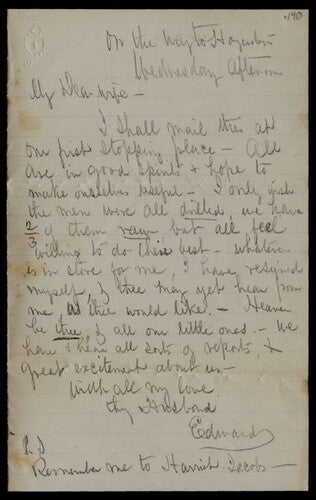 140
On the way to Hagerstn
Wednesday Afternoon
My Dear wife -
I shall mail this at
our first stopping place - All
are in good spirits & hope to
make ourselves useful - I only wish
the men were all drilled, we have
2/3 of them raw but all feel
willing to do their best - whatever
is in store for me, I have resigned
myself, & thee may yet hear from
me, as thee would like. - Heaven
be thine & all our little ones. - We
have & hear all sorts of reports, &
great excitement about us -
With all my love
thy Husband
Edward
P.S
Remember me to Harriet Jacobs -